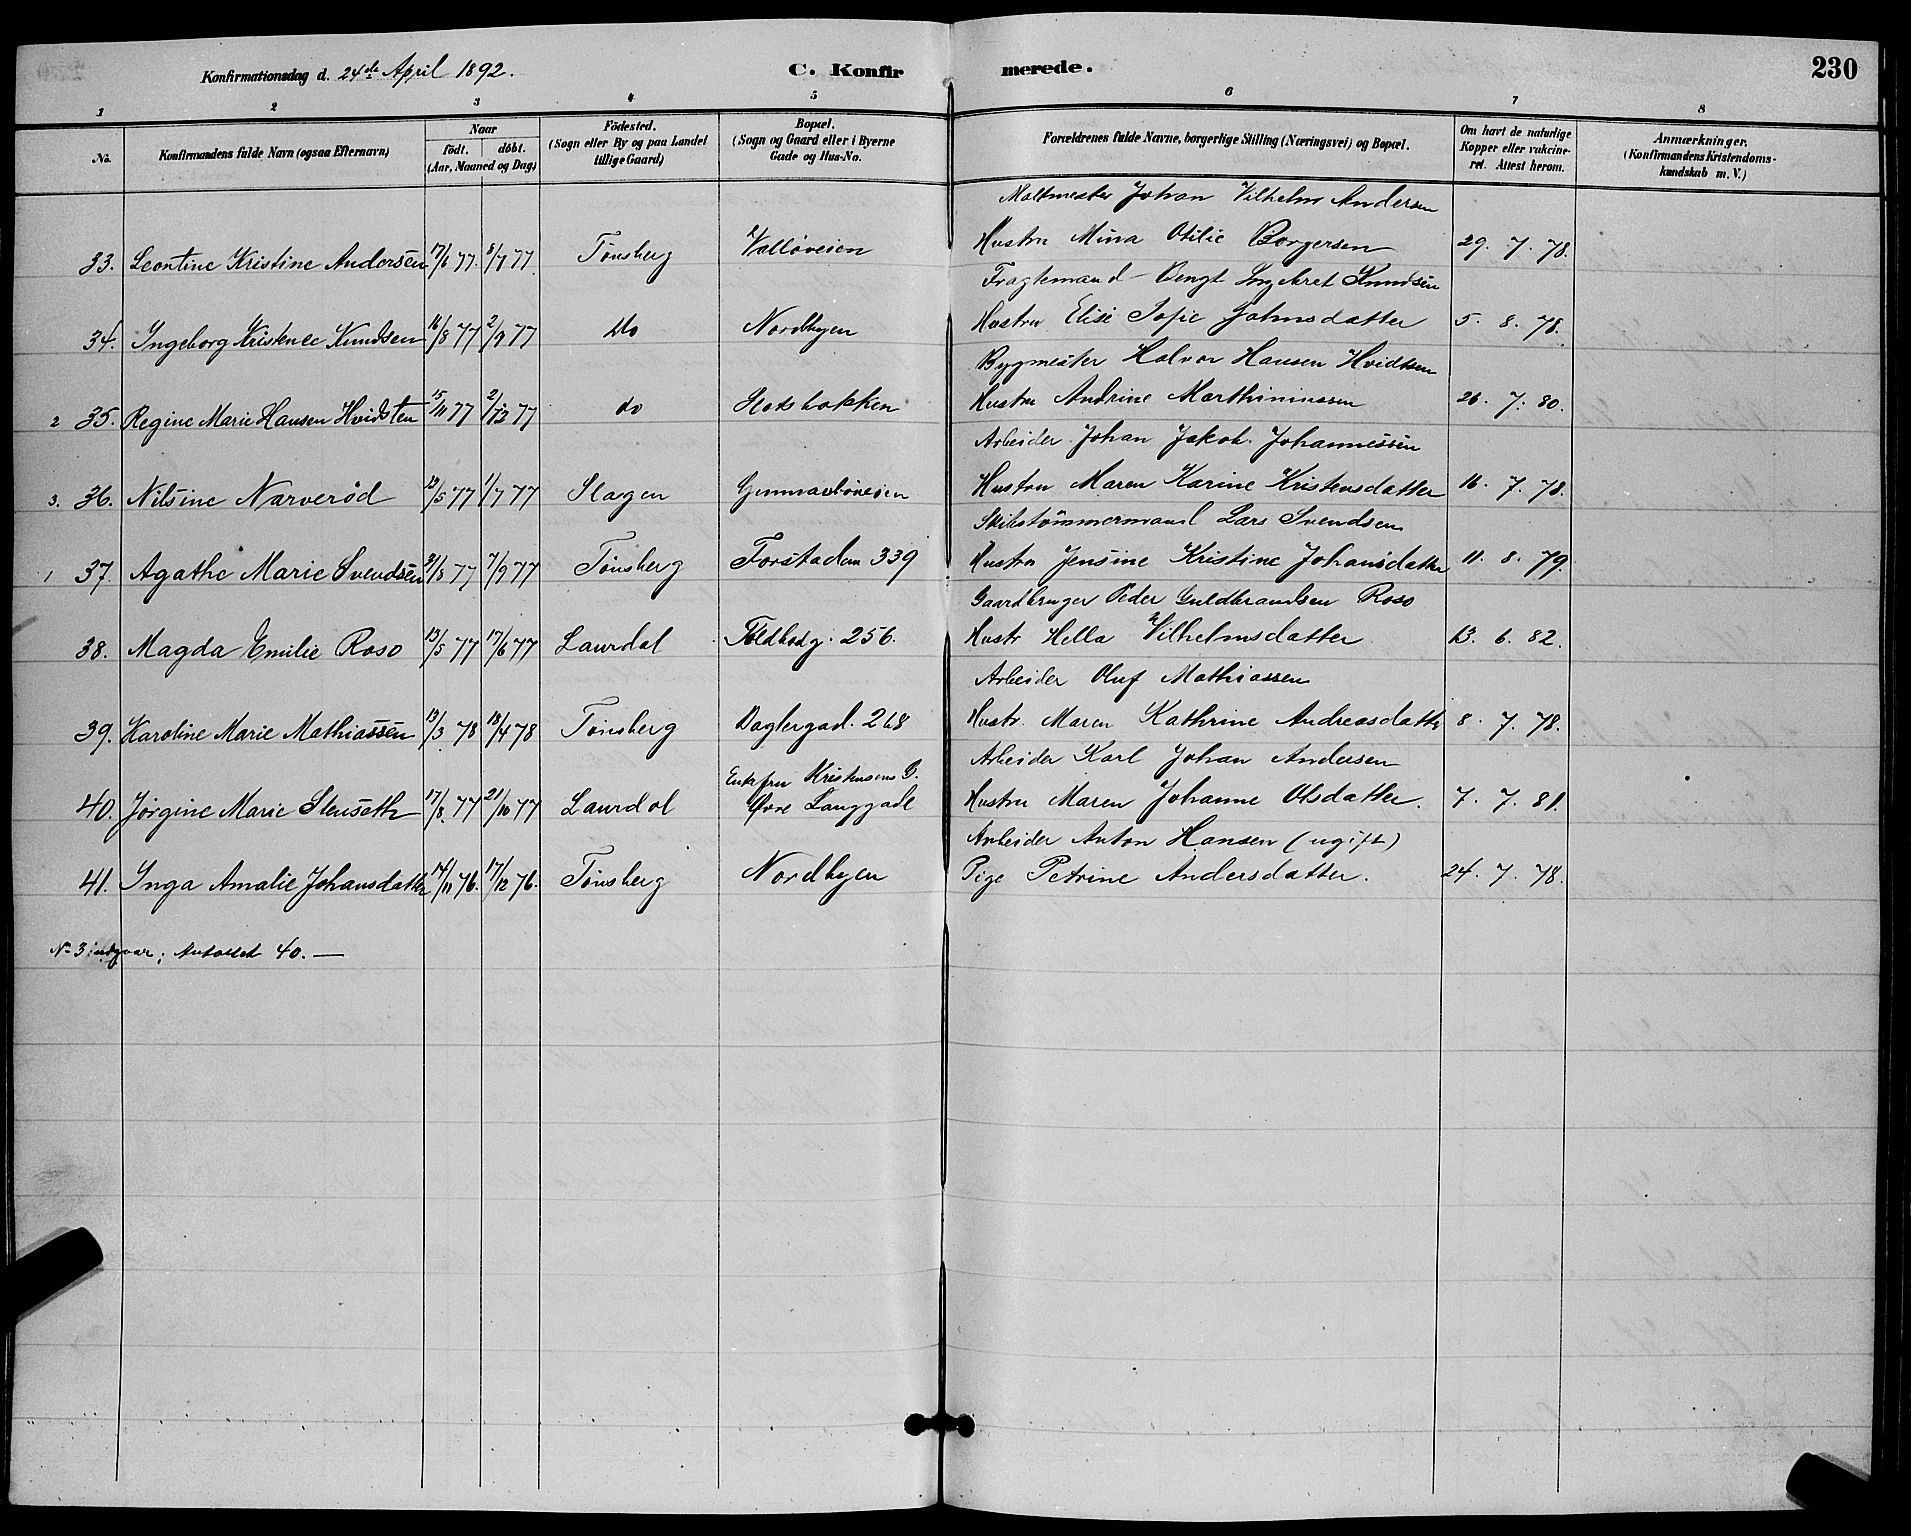 Konfirmationsdag d. 24de April 1892.
C. Konfirmerede.
230
1 2 3 4 5 6 7 8
No.
Konfirmandens fulde Navn (ogsaa Efternavn)
Naar
födt. döbt.
(Aar, Maaned og Dag)
Födested.
(Sogn eller By og paa Landet
tillige Gaard)
Bopæl.
(Sogn og Gaard eller i Byerne
Gade og Hus-No.
Forældrenes fulde Navne, borgerlige Stilling (Næringsvei) og Bopæl.
Om havt de naturlige
Kopper eller vakcine-
ret. Attest herom.
Anmærkninger.
(Konfirmandens Kristendoms-
kundskab m. V.)
Maltmester Johan Vilhelm Andersen
33. Leontine Kristine Andersen 17/6 77. 8/7 77. Tönsberg Vallöveien Hustru Mina Otilie Borgersen 29. 7. 78.
Fragtemand Bengt Knudsen
34. Ingeborg Kristence Knudsen 16/8 77 2/9 77 do Nordbyen Hustru Elise Sofie Johnsdatter 5. 8. 78.
Bygmester Halvor Hansen Hvidtsen
2 35. Regine Marie Hansen Hvidsten 15/11 77 2/12 77 do Hatsbakken Hustru Andrine Marthiniussen 26. 7. 80.
Arbeider Johan Jakob Johannessen
3. 36. Nilsine Narveröd 12/5 77 1/7 77 Slagen Hustru Maren Karine Kristensdatter 16. 7. 78.
Skibstömmermand Lars Svendsen
1 37. Agathe Marie Svendsen 31/8 77 7/9 77 Tönsberg Forstaden 339 Hustru Jensine Kristine Johansdatter 11. 8. 79.
Gaardbruger Peder Guldbrandsen Roso
38. Magda Emilie Roso 13/5 77 17/6 77 Laurdal Toldbodg. 256. Hustr Hella Vilhelmsdatter 13. 6. 82.
Arbeider Oluf Mathiassen
39. Karoline Marie Mathiassen 13/3 78 18/4 78 Tönsberg Baglergad. 268 Hustr. Maren Kathrine Andreasdattr 8. 7. 78.
Arbeider Karl Johan Andersen
Enkefru Kristensens G.
40. Jörgine Marie Stenseth 17/8. 77 21/10 77 Laurdal Övre Langgade Hustru Maren Johanne Olsdatter. 7. 7. 81.
Arbeider Anton Hansen (ugift)
41. Inga Amalie Johansdatter 14/11 76. 17/12 76. Tönsberg Nordbyen Pige Petrine Andersdatter. 24. 7. 78.
No 3 udgaar; Antallet 40. —